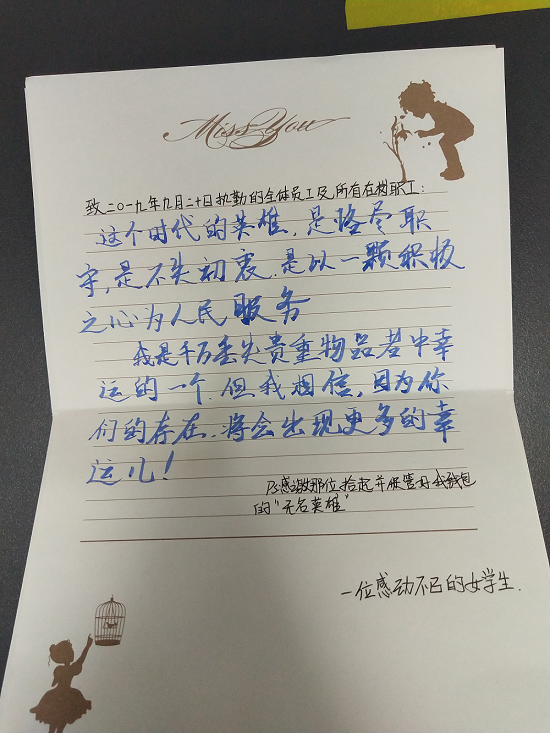 Miss You
致二〇一九年九月二十日执勤的全体员工及所有在岗职工:
这个时代的英雄,是恪尽职
守,是不失初衷.是以一颗积极
之心为人民服务
我是千万丢失贵重物品者中幸
运的一个.但我相信,因为你
们的存在.将会出现更多的幸
运儿!
Ps感激那位拾起并保管好我钱包
的“无名英雄”
一位感动不已的女学生.